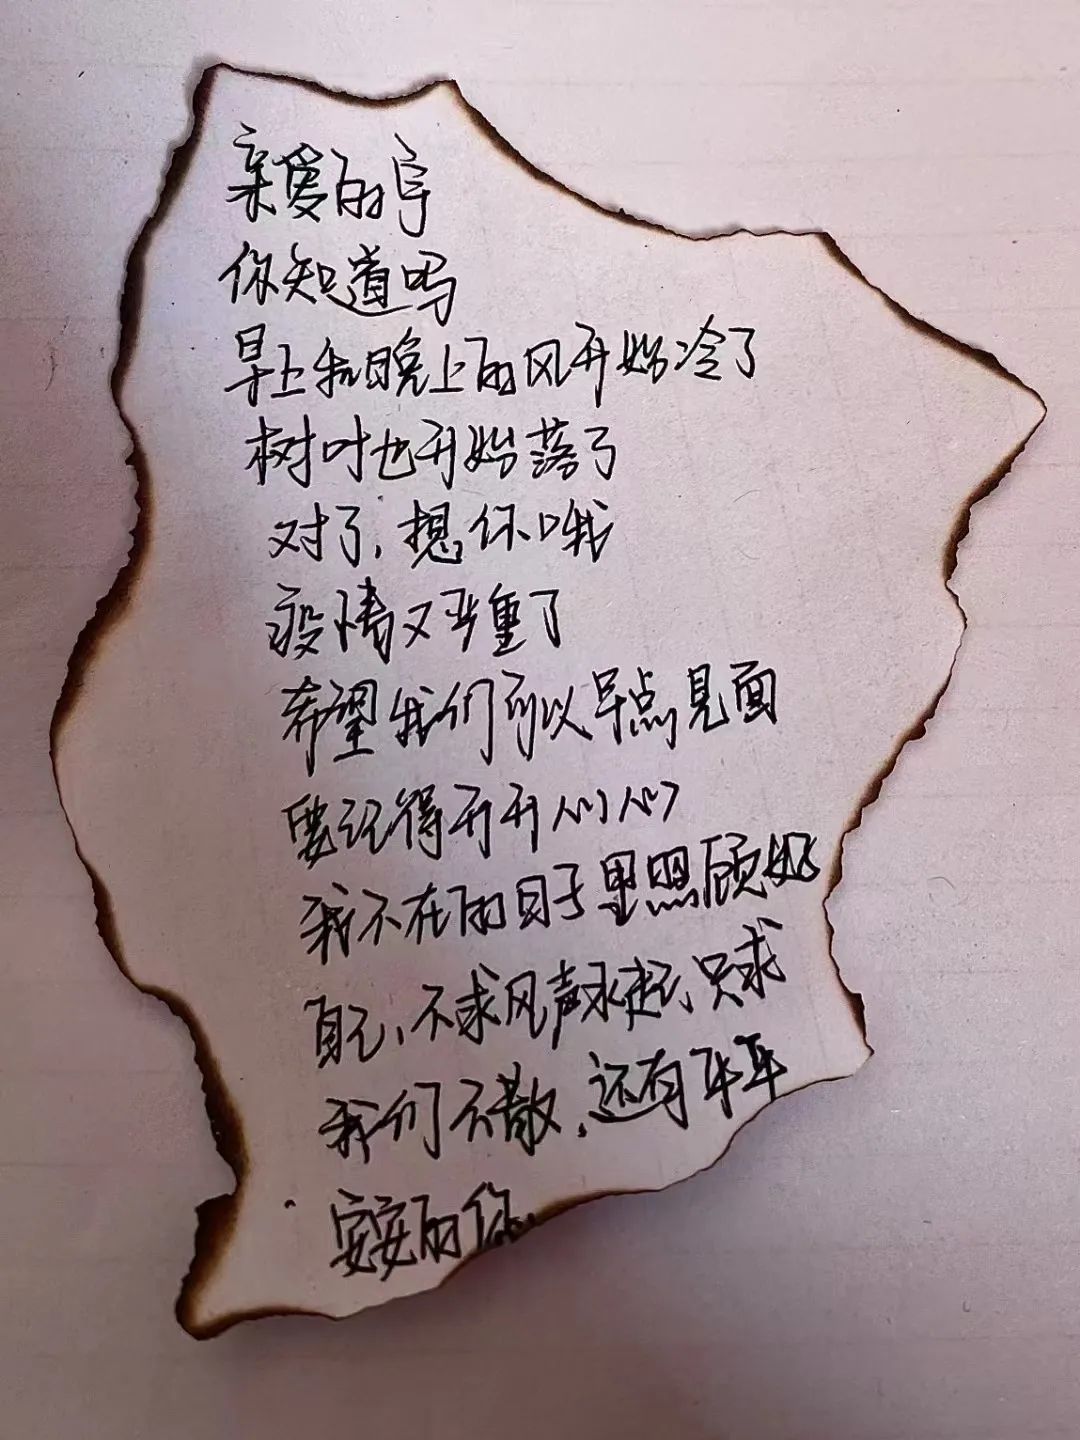 亲爱的阜
你知道吗
早上和晚上的风开始冷了
树叶也开始落了
对了,想你哦
疫情又严重了
希望我们可以早点见面
要记得开开心心
我不在的日子里照顾好
自己,不求风声水起,只求
我们不散,还有平平
安安的你.